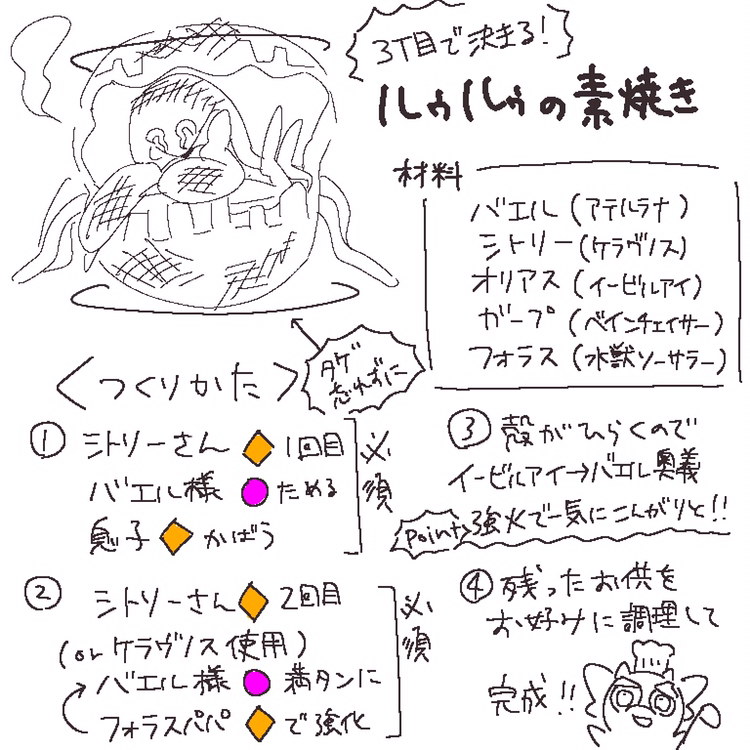 3T目で決まる!
ルゥルゥの素焼き
材料
バエル(アテルラナ)
シトリー(ケラヴノス)
オリアス(イービルアイ)
ガープ(ベインチェイサー)
フォラス(水獣ソーサラー)
タゲ
忘れずに
<つくりかた>
① シトリーさん 1回目
バエル様 ためる
息子 かばう
必須
② シトリーさん 2回目
(orケラヴノス使用)
バエル様 満タンに
フォラスパパ で強化
必須
③ 殻がひらくので
イービルアイ→バエル奥義
Point 強火で一気にこんがりと!!
④ 残ったお供を
お好みに調理して
完成!!